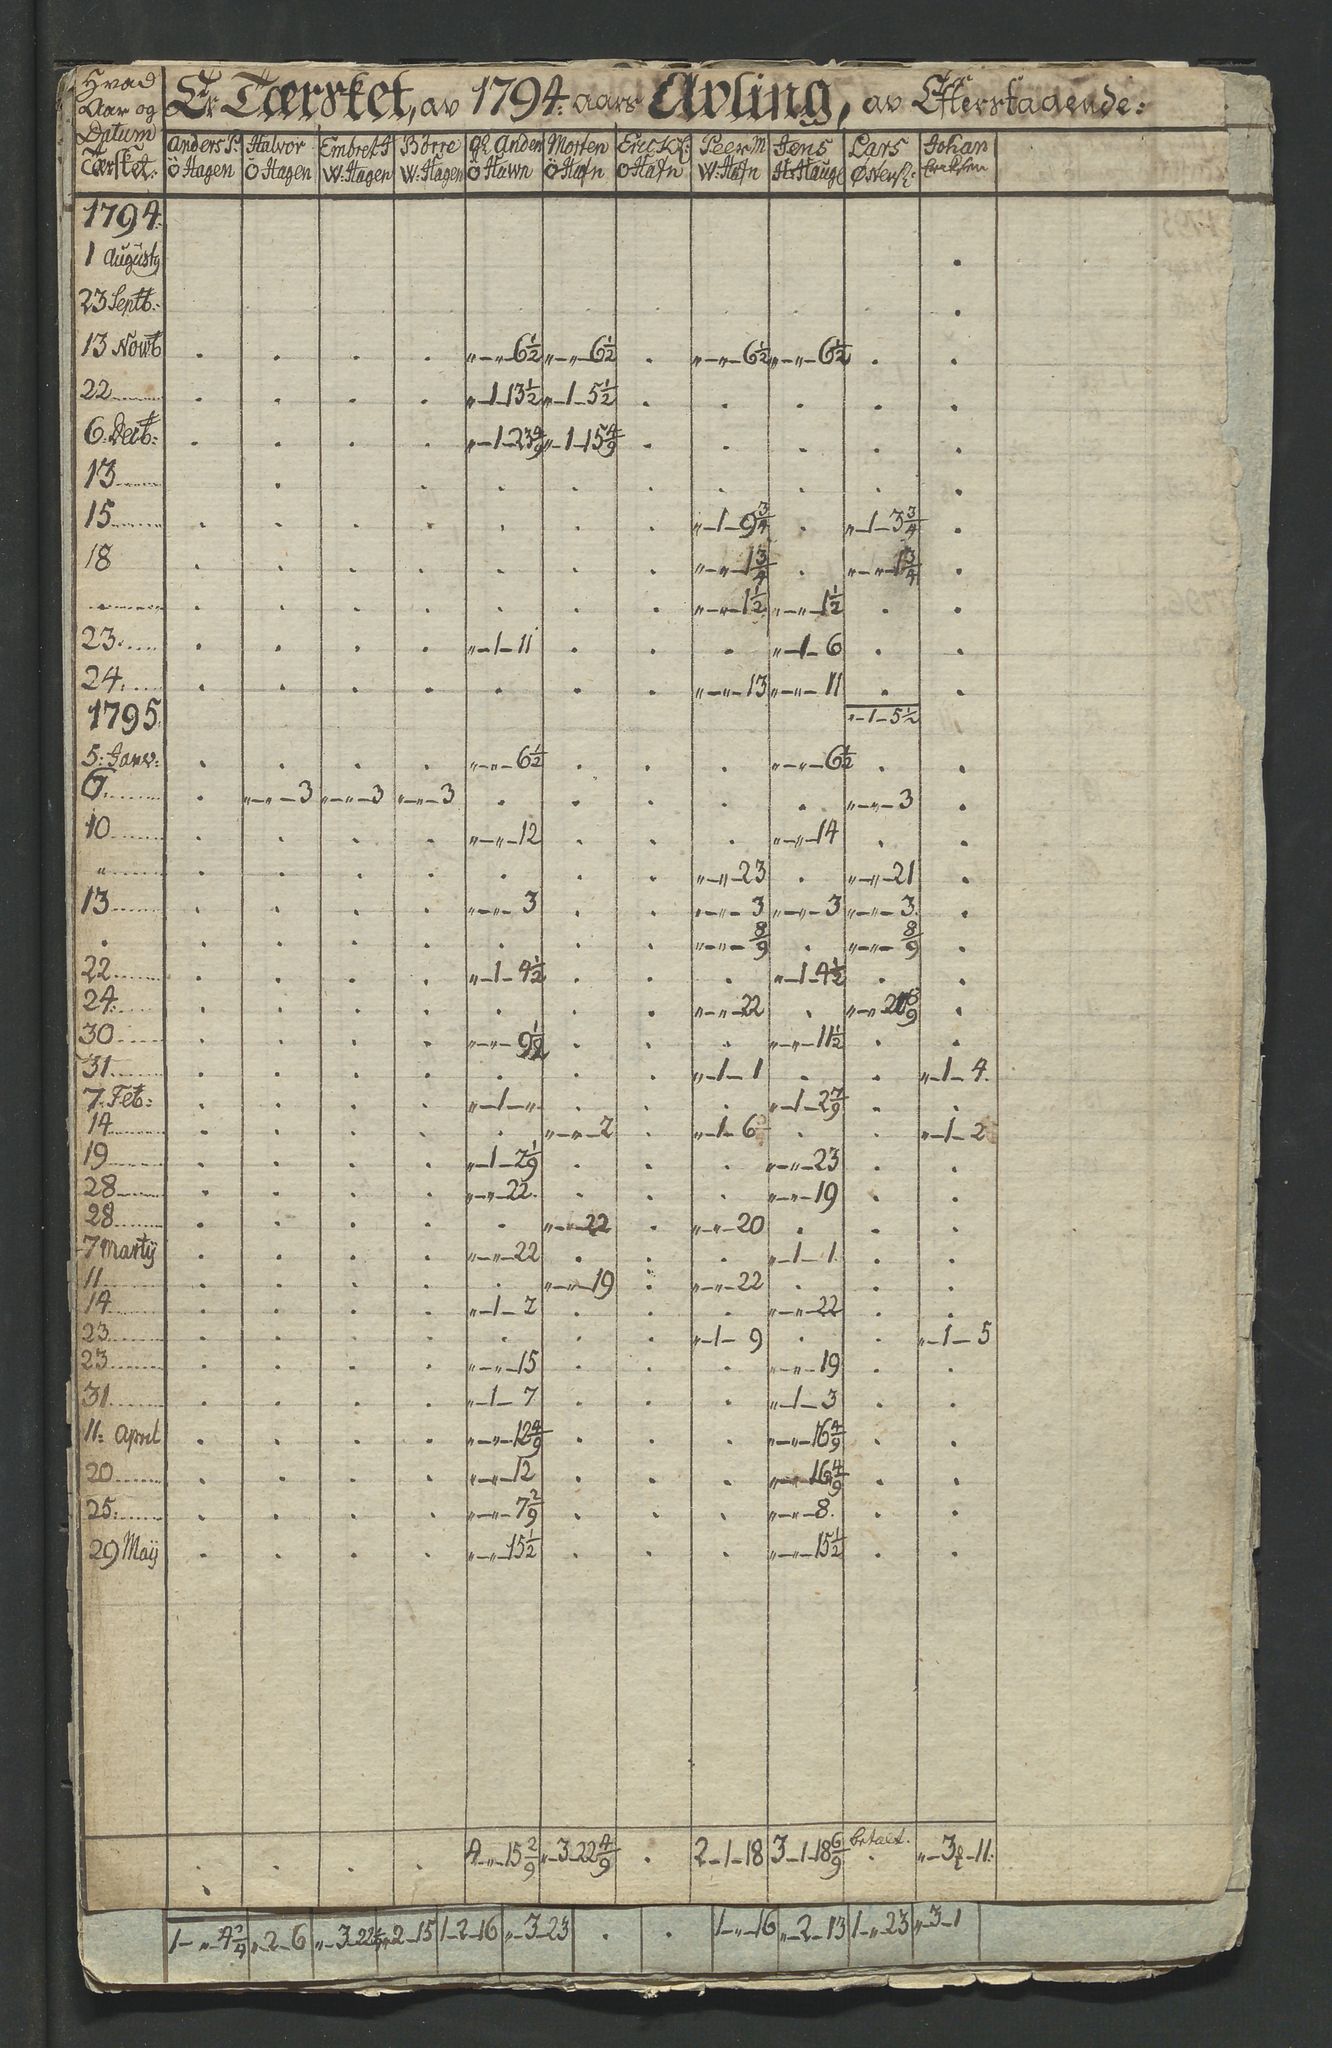 Hvad Er Tærsket, av 1794. aars Avling, av Efterstaaende:
Aar og
Datum
Tærsket.
Anders P. Halvor Embret A Börre gl. Anders Morten Erick Peer M Jens Lars Johan
Ö Hagen Ö Hagen W. Hagen W. Hagen Ö Hawn Ö Hafn Ö Hafn W. Hafn H. Hauge Østensl: Ericksen
1794.
1 Augusty
23 Septb:
13 Novb „-„-6½ „-„-6½ „-„-6½ „-„-6½
22 „-1-13½ „-1-5½
6. Decb: „-1-23 4/9 „-1-15 4/9
13
15 „-1-9¾ „-1-3¾
18 „-„-1¾ „-„-1¾
„-„-1½ „-„-1½
23. „-1-11 „-1-6
24. „-„-13 „-„-11
1795. „-1-5½
5: Janv: „-„-6½ „-„-6½
6. „-„-3 „-„-3 „-„-3 „-„-3
10 „-„-12 „-„-14
„ „-„-23 „-„-21
13 „-„-3 „-„-3 „-„-3 „-„-3.
„-„-8/9 „-„-8/9
22 „-1-4½ „-1-4½
24. „-„-22
30 „-„-9½ „-„-11½
31. „-1-1 „-1-4.
7. Feb: „-1-„ „-1-2 7/9
14 „-„-2 „-1-6 „-1-2
19 „-1-2 1/9 „-„-23
28 „-„-22. „-„-19
28 „-„-22 „-„-20
7 Martij „-„-22 „-1-1
11 „-„-19 „-„-22
14 „-1-2 „-„-22
23 „-1-9 „-1-5
23 „-„-15 „-„-19
31 „-1-7 „-1-3
11: April „-„-12 4/9 „-„-16 4/9
20 „-„-12 „-„-16 4/9
25: „-„-7 2/9 „-„-8.
29 Maij „-„-15½ „-„-15½
4-„-15 2/9 „-3-22 4/9 2-1-18 3-1-18 6/9 betalt. „-3½-11:
1-„-4¾ „-2-6 „-3-22 „-2-15 1-2-16 „-3-23 1-„-16 „-2-13 1-„-23 „-3-1